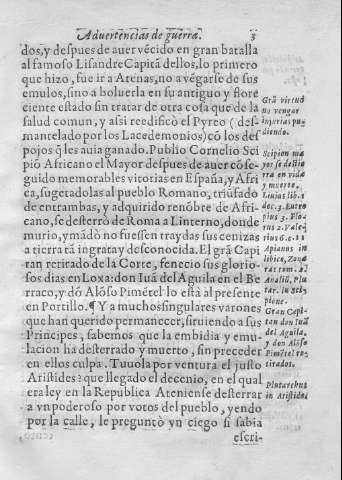 Aduertencias de guerra. 3
dos, y despues de auer vēcido en gran batalla
al famoso Lisandre Capitā dellos, lo primero
que hizo, fue ir a Atenas, no a vēgarse de sus
emulos, sino a boluerla en su antiguo y flore
ciente estado sin tratar de otra cosa que de la
salud comun, y assi reedificò el Pyreo (des
mantelado por los Lacedemonios) cō los des
pojos q̃ les auia ganado. Publio Cornelio Sci
pió Africano el Mayor despues de auer cōse
guido memorables vitorias en España, y Afri
ca, sugetadolas al pueblo Romano, triūfado
de entrambas, y adquirido renōbre de Afri-
cano, se desterrò de Roma a Linterno, donde
murio, y mādò no fuessen tray das sus cenizas
a tierra tā ingrata y desconocida. El grā Capi
tan retirado de la Corte, fenecio sus glorio-
sos dias en Loxa: don Iuā del Aguila en el Be
rraco, y dō Alōso Pimētel lo està al presente
en Portillo. ¶ Y a muchos singulares varones
que han querido permanecer, siruiendo a sus
Principes, sabemos que la embidia y emu-
lacion ha desterrado y muerto, sin preceder
en ellos culpa. Tuuola por ventura el justo
Aristides? que llegado el decenio, en el qual
era ley en la Republica Ateniense desterrar
a vn poderoso por votos del pueblo, yendo
por la calle, le preguntò vn ciego si sabia
escri-
Grā virtud
no vengar
injurias pu
diendo.
Scipion ma
yor se destie
rra en vida
y muerte.
Liuius lib. 8
dec. 3. Eutro
pius 3. Flo-
rus 2. Vale-
rius 6. c. 2
Apianus in
libica, Zona
ras tom. 2.
Anales, Plu
tar. in Sci-
pione.
Gran Capi-
tan don Iuā
del Aguila,
y don Alōso
Pimētel re-
tirados.
Plutarchus
in Aristides